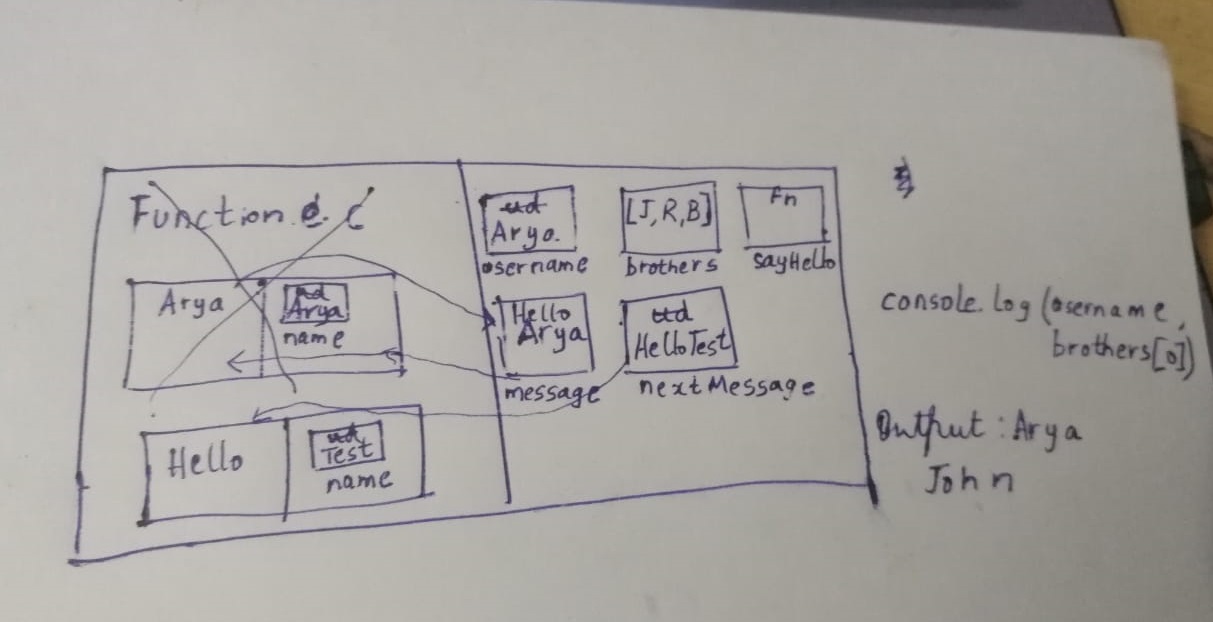 Function e. C
Arya
ud
Arya
name
Hello
ud
Test
name
ud
Arya.
username
[J,R,B]
brothers
Fn
sayHello
Hello
Arya
message
ud
HelloTest
nextMessage
console.log (username,
brothers[0])
Output : Arya
John